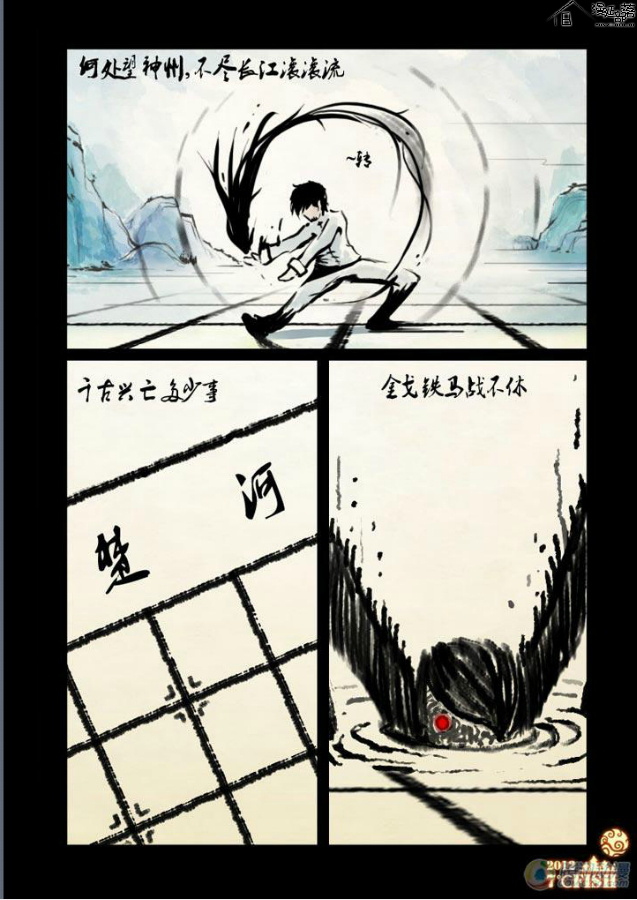 漫画部落
何处望神州,不尽长江滚滚流
~转
千古兴亡多少事
河
楚
金戈铁马战不休
2012
7°CFISH